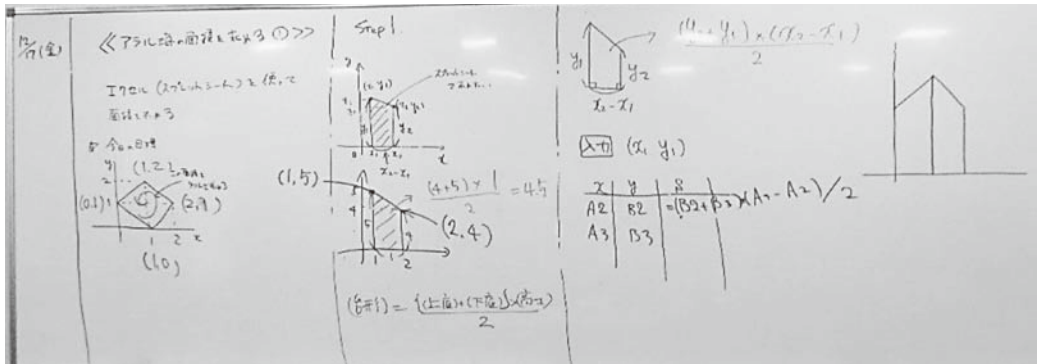 12/17(金)
≪アラル海の面積を求める①≫
エクセル(スプレッドシート)を使って
面積を求める
今日の目標
y
2
(1,2)
(0,1)
1
(2,1)
1 2 x
(1,0)
Step 1.
y
(x1 y1)
y1
y2
0
x1
x2
x
x2-x1
(1,5)
5
4
5
4
1
1
2
(2,4)
(4+5)×1 / 2 = 4.5
(台形) = {(上底)+(下底)}×(高さ) / 2
y1
y2
x2-x1
(y2+y1)×(x2-x1) / 2
入力 (x1 y1)
x y S
A2 B2 =(B2+B3)*(A3-A2)/2
A3 B3